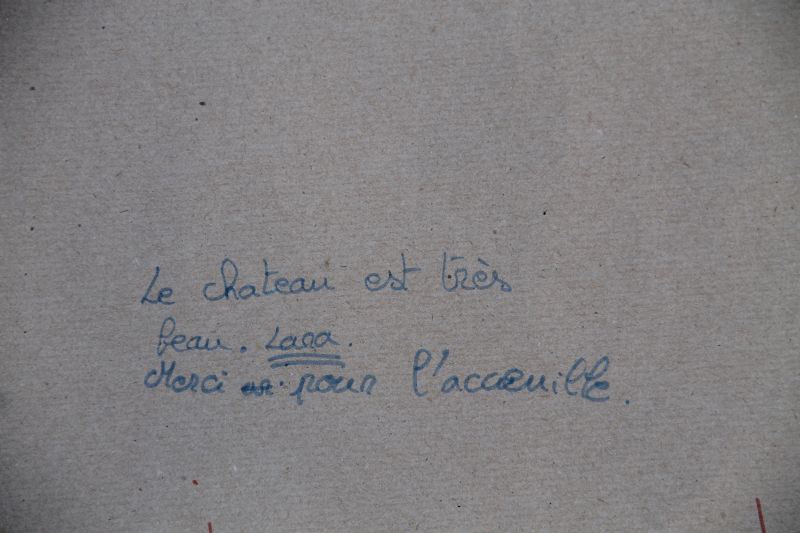 Le chateau est très
beau. Lara.
Merci pour l'accueuille.